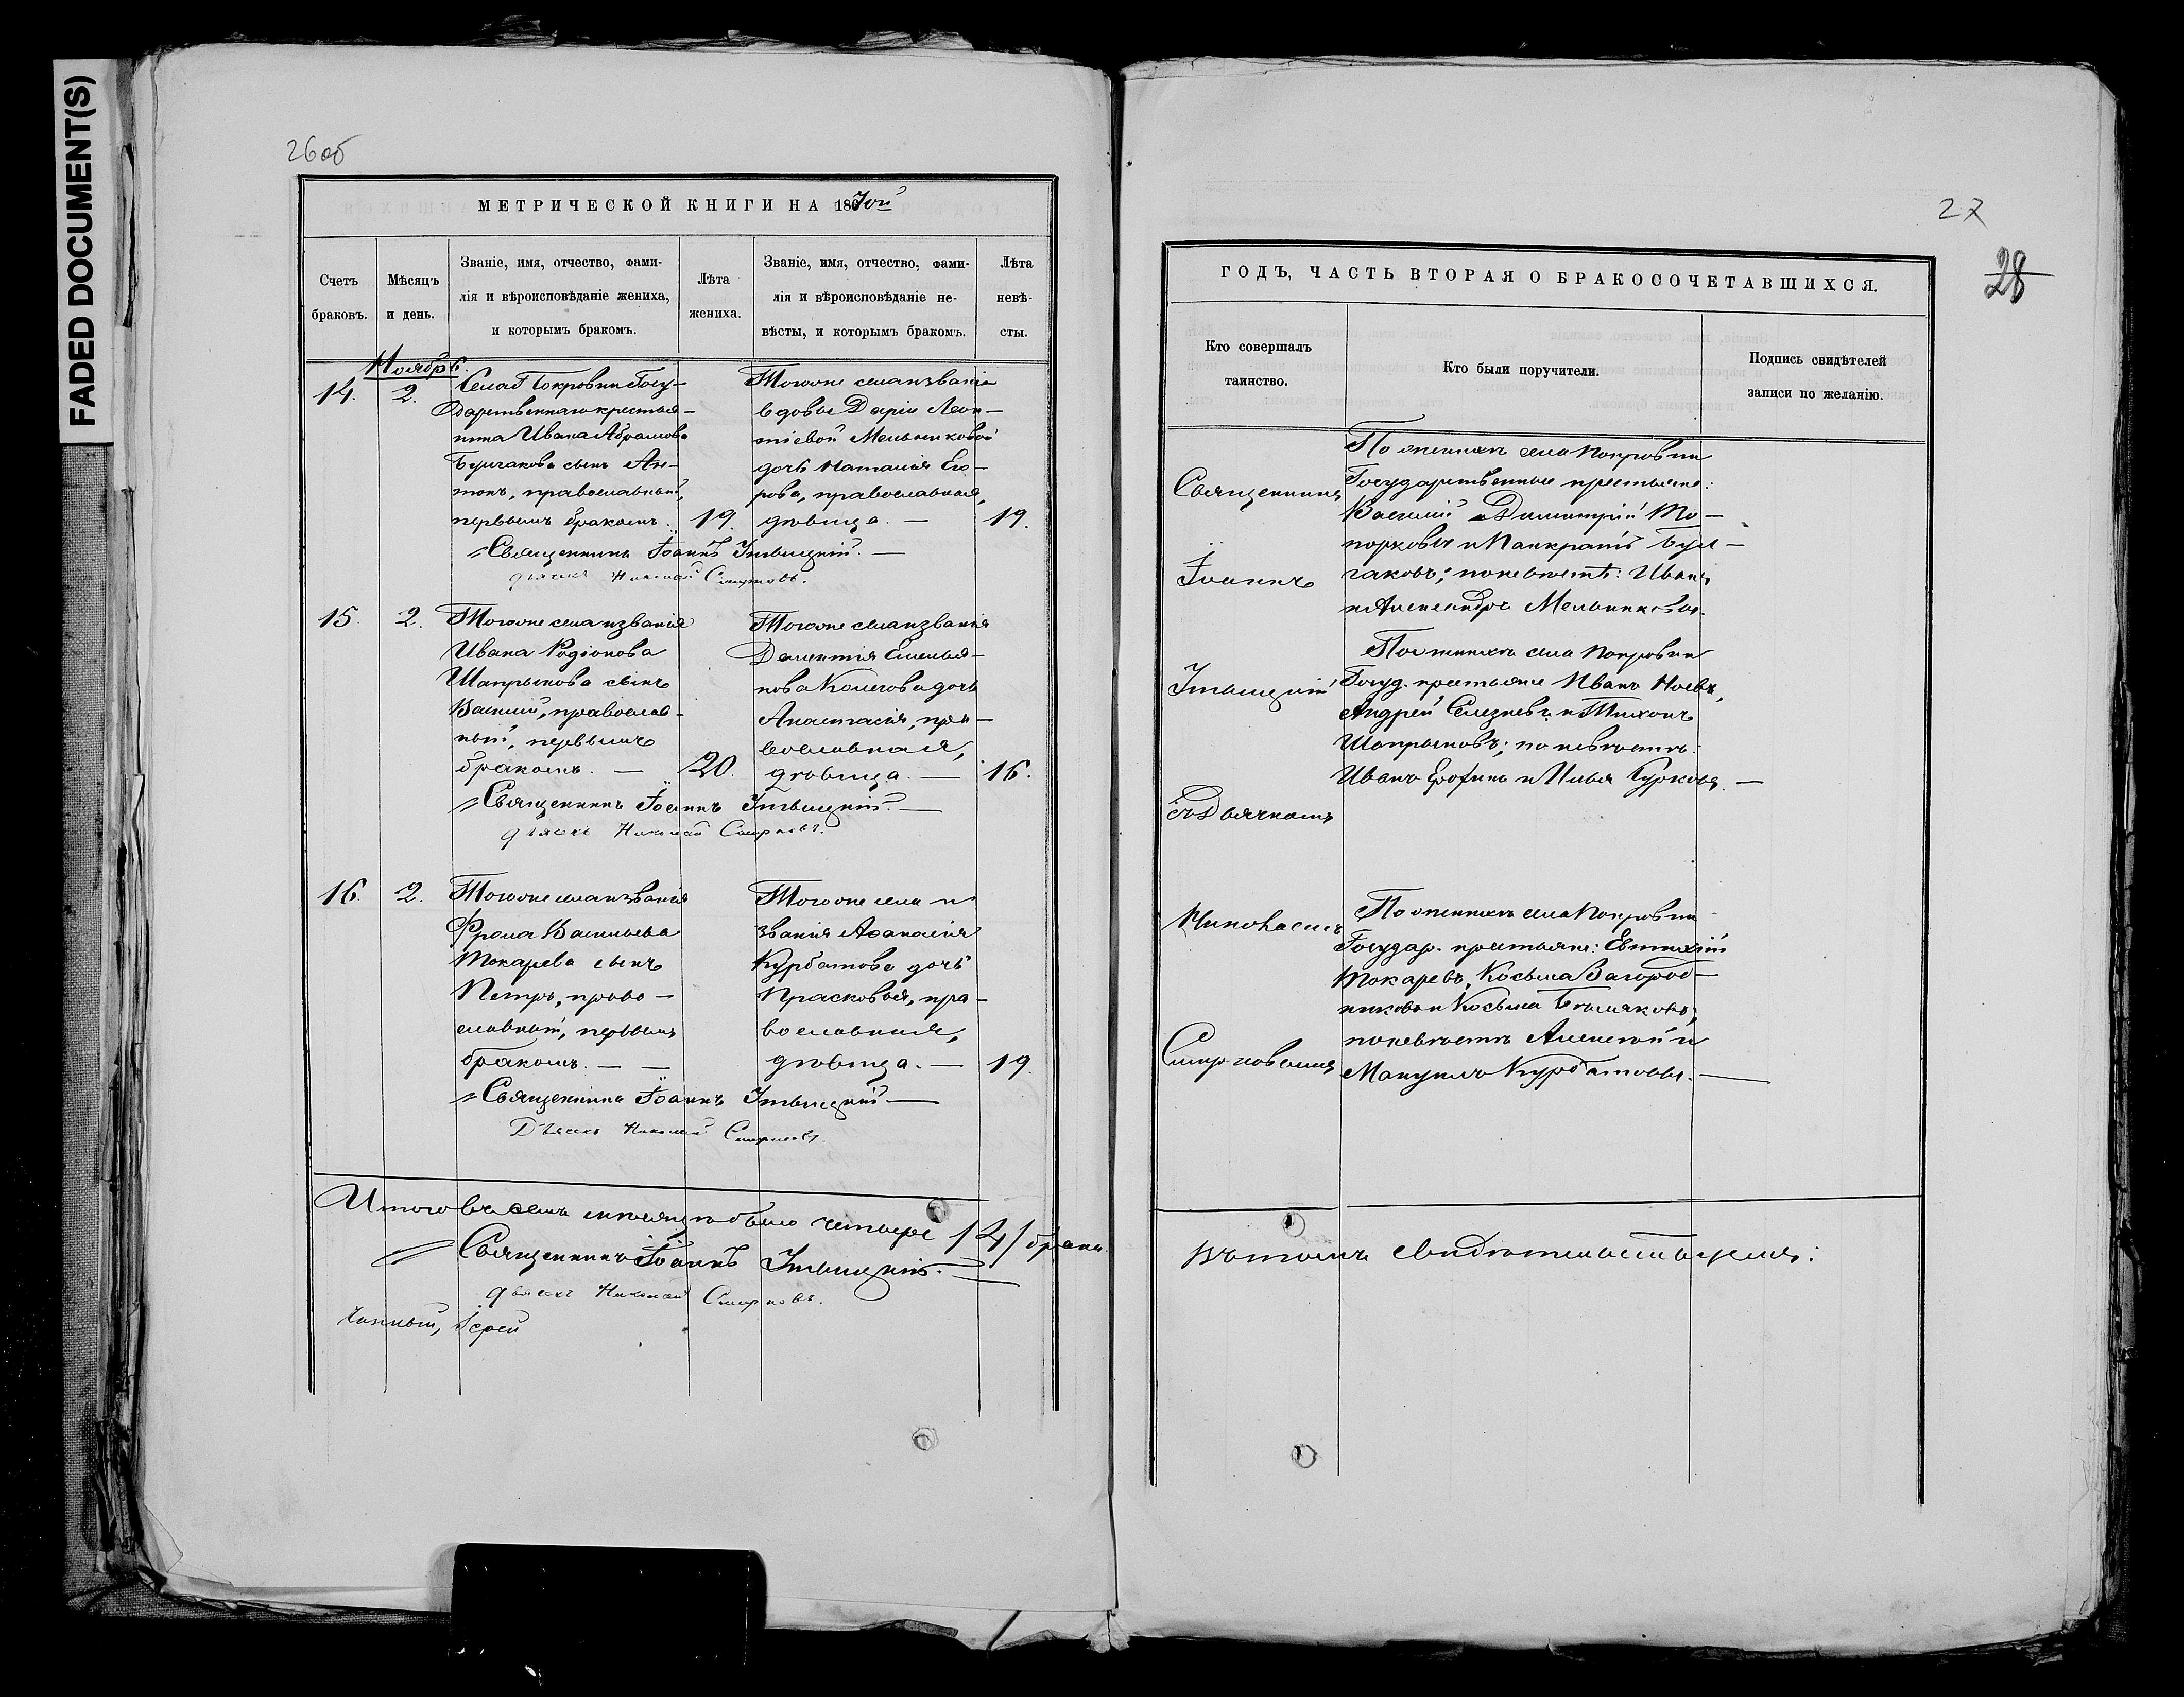 FADED DOCUMENT(S)
26об
МЕТРИЧЕСКОЙ КНИГИ НА 1867ой
Счетъ браковъ.
Мѣсяцъ и день.
Званіе, имя, отчество, фами-
лія и вѣроисповѣданіе жениха,
и которымъ бракомъ.
Лѣта жениха.
Званіе, имя, отчество, фами-
лія и вѣроисповѣданіе не-
вѣсты, и которымъ бракомъ.
Лѣта невѣ-
сты.
Ноябрь.
14.
2.
Села Покровки Госу-
дарственнаго крестья-
нина Ивана Абрамова
Булгакова сынъ Ан-
тонъ, православный,
первымъ бракомъ.
19.
Тогоже села и званія
вдовы Даріи Леон-
тіевой Мельниковой
дочь Наталія Его-
рова, православная,
дѣвица. —
19.
Священникъ Іоаннъ
дьячекъ Николай Смирновъ.
15.
2.
Тогоже села и званія
Ивана Родіонова
Шапрынова сынъ
Василій, православ-
ный, первымъ
бракомъ. —
20.
Тогоже села и званія
Дементія Емелья-
нова Колегова дочь
Анастасія, пра-
вославная,
дѣвица. —
16.
Священникъ Іоаннъ
дьячекъ Николай Смирновъ.
16.
2.
Тогоже села и званія
Фрола Васильева
Токарева сынъ
Петръ, право-
славный, первымъ
бракомъ. — —
Тогоже села и
званія Аѳанасія
Курбатова дочь
Прасковья, пра-
вославная,
дѣвица. —
19.
Священникъ Іоаннъ
Дьячекъ Николай Смирновъ.
Итого въ семъ мѣсяцѣ было четыре /4/ брака.
Священникъ Іоаннъ
дьячекъ Николай Смирновъ.
Іерей
27
28
ГОДЪ, ЧАСТЬ ВТОРАЯ О БРАКОСОЧЕТАВШИХСЯ.
Кто совершалъ
таинство.
Кто были поручители.
Подпись свидѣтелей
записи по желанію.
Священникъ
Іоаннъ
съ Дьячкомъ
Николаемъ
Смирновымъ
По женихѣ села Покровки
Государственные крестьяне:
Василій Димитрій То-
порковы и Панкратъ Бул-
гаковъ; по невѣстѣ: Иванъ
и Александръ Мельниковы.
По женихѣ села Покровки
Госуд. крестьяне Иванъ Ноевъ,
Андрей Селезневъ и Тихонъ
Шапрыновъ; по невѣстѣ:
Иванъ и Илья Курковы. —
По женихѣ села Покровки
Государ. крестьяне: Евтихій
Токаревъ, Косьма Загород-
никовъ и Косьма
по невѣстѣ Алексѣй и
Мануилъ Курбатовы. —
въ томъ свидѣтельствуемъ: